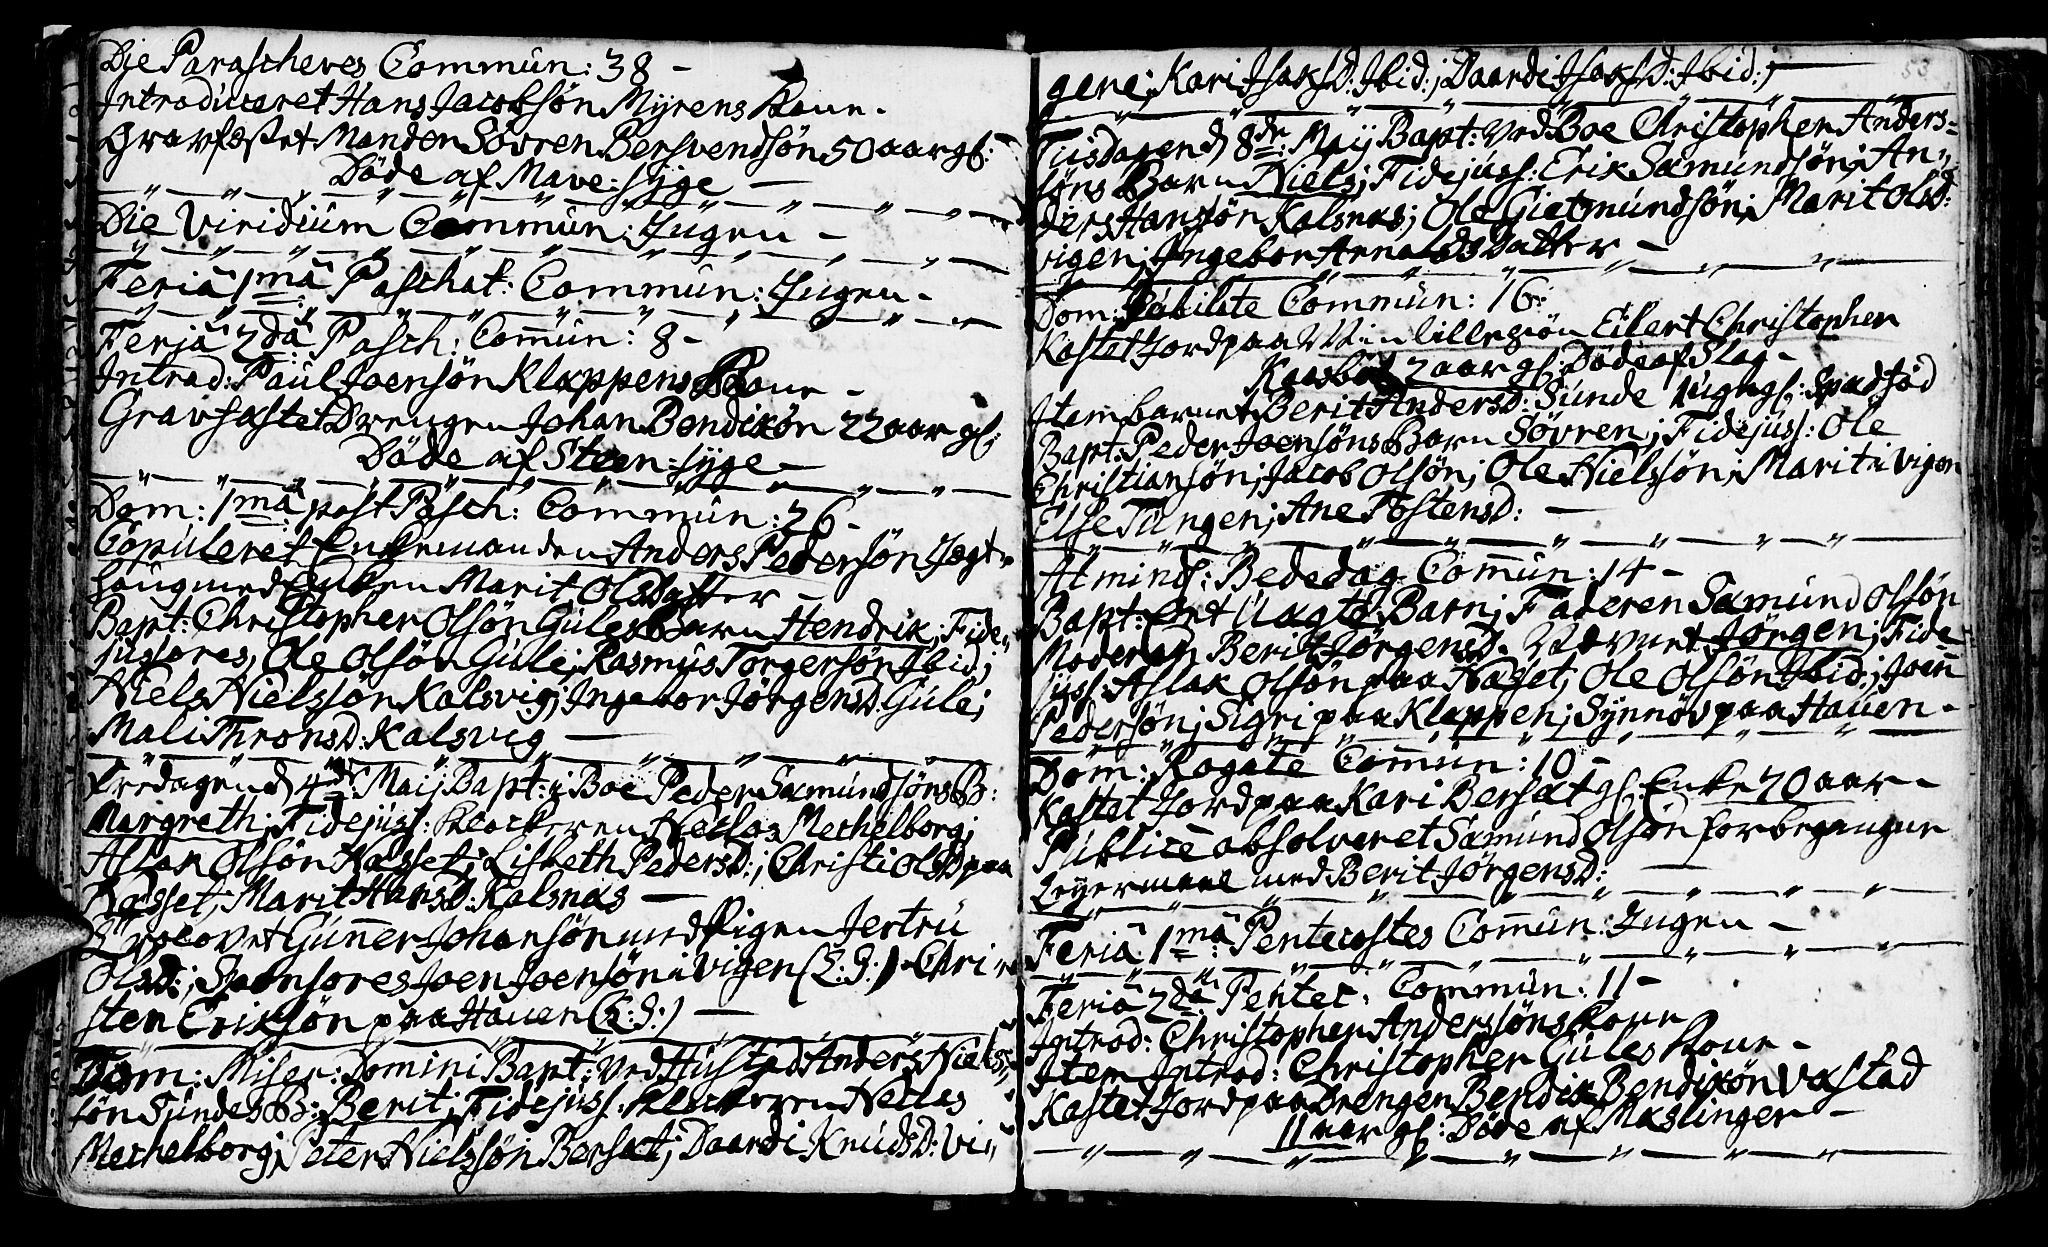 Die Parascheves Commun: 38 -
Introduceret Hans Jacobsøn Myrens Kone -
Gravfæstet Manden Søvren Bersvendsøn 50 aar gl:
Døde af Mave-syge -
Die Viridium Commun: Ingen -
Feriâ 1mâ Paschat: Commun: Ingen -
Feriâ 2dâ: Pasch: Com̄un: 8 -
Introd: Paul Joensøn Klappens Kone -
Gravfæstet Drengen Johan Bendixøn 22 aar gl:
Døde af Steen-syge -
Dom: 1mâ: post Pasch: Commun: 26 -
Copuleret Enkemanden Anders Pedersøn Hegt-
haug med Enken Marit Olsdatter -
Bapt: Christopher Olsøn Gules Barn Hendrik; Fide-
jussores, Ole Olsøn Gule; Rasmus Torgersøn Ibid;
Niels Nielssøn Kalsvig; Ingebor Jørgensd: Gule;
Mali Thronsd: Kalsvig -
Fredagen d 4de Maij Bapt: i Boe Peder Samundsøns B:
Margreth; Fidejuss: Klockeren Niclas Mechelborg;
Aslak Olsøn Hasset; Lisbeth Pedersd:; Christi Olsd paa
Hasset; Marit Hansd: Kalsnæs -
Trolovet Gun̄er Johansøn med Pigen Jertru
Olsd:; Sponsores Joen Joensøn i Vigen (L:S:) Chri-
sten Eriksøn paa Hauen (L:S:) -
Dom: Miser: Domini Bapt: ved Hustad Anders Niels-
søn Sundes B: Berit; Fidejuss: Klockeren Niclas
Mechelborg; Peter Nielssøn Bersæt; Daardi Knudsd: Vi-
53
gene; Kari Isaksd: Ibid:; Daardi Isaksd: Ibid:;
Tiisdagen d 8de: Maij Bapt: ved Boe Christopher Anders-
søns Barn Niels; Fidejuss: Erik Samundsøn; An-
ders Hansøn Kalsnæs; Ole Gietmundsøn; Marit Olsd:
vigen; Ingebor Arnoldsdatter -
Dom: Jubilate Commun: 16:
Kastet Jord paa Min lille søn Eilert Christopher
Kaasbøl 2 aar gl: Døde af Slag -
Item barnet Berit Andersd: Sunde 1 ugh gl: Spædfød
Bapt: Peder Joensøns Barn Søvren; Fidejuss: Ole
Christiansøn; Jacob Olsøn; Ole Nielssøn; Marit i Vigen
Else Tungen; Ane Tostensd: -
Almind: Bededag Com̄un: 14 -
Bapt: Et Uægte Barn; Faderen Samund Olsøn
Moderen Berit Jørgensd. Nævnet Jørgen; Fide-
juss: Aslak Olsøn paa Haset; Ole Olsøn Ibid:; Joen
Pedersøn; Sigri paa Klappen; Synnøv paa Hauen -
Dom: Rogate Com̄un: 10 -
Kastet Jord paa Kari Bersæt gl: Enke 70 aar -
Publicè absolveret Samund Olsøn for begangne
Leyermaal med Berit Jørgensd: -
Feriâ 1mâ: Pentecostes Com̄un: Ingen -
Feriâ 2dâ: Pentec: Commun: 11 -
Introd: Christopher Anderssøns Kone
Item Introd: Christopher Gules Kone -
Kastet Jord paa Drengen Bendix Bendixøn Vastad
11 aar gl: Døde af Mæslinger -